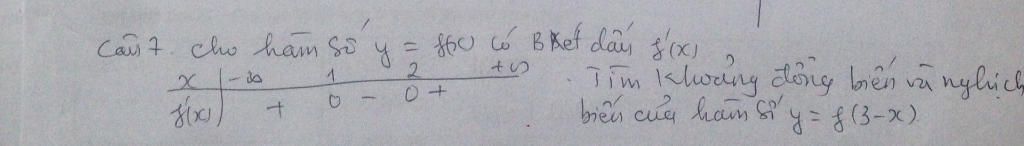 Câu 7. Cho hàm số y = f(x) có Bxét dấu f'(x)
x | -∞ 1 2 +∞ . Tìm khoảng đồng biến và nghịch
f'(x) | + 0 - 0 + biến của hàm số y = f(3-x)